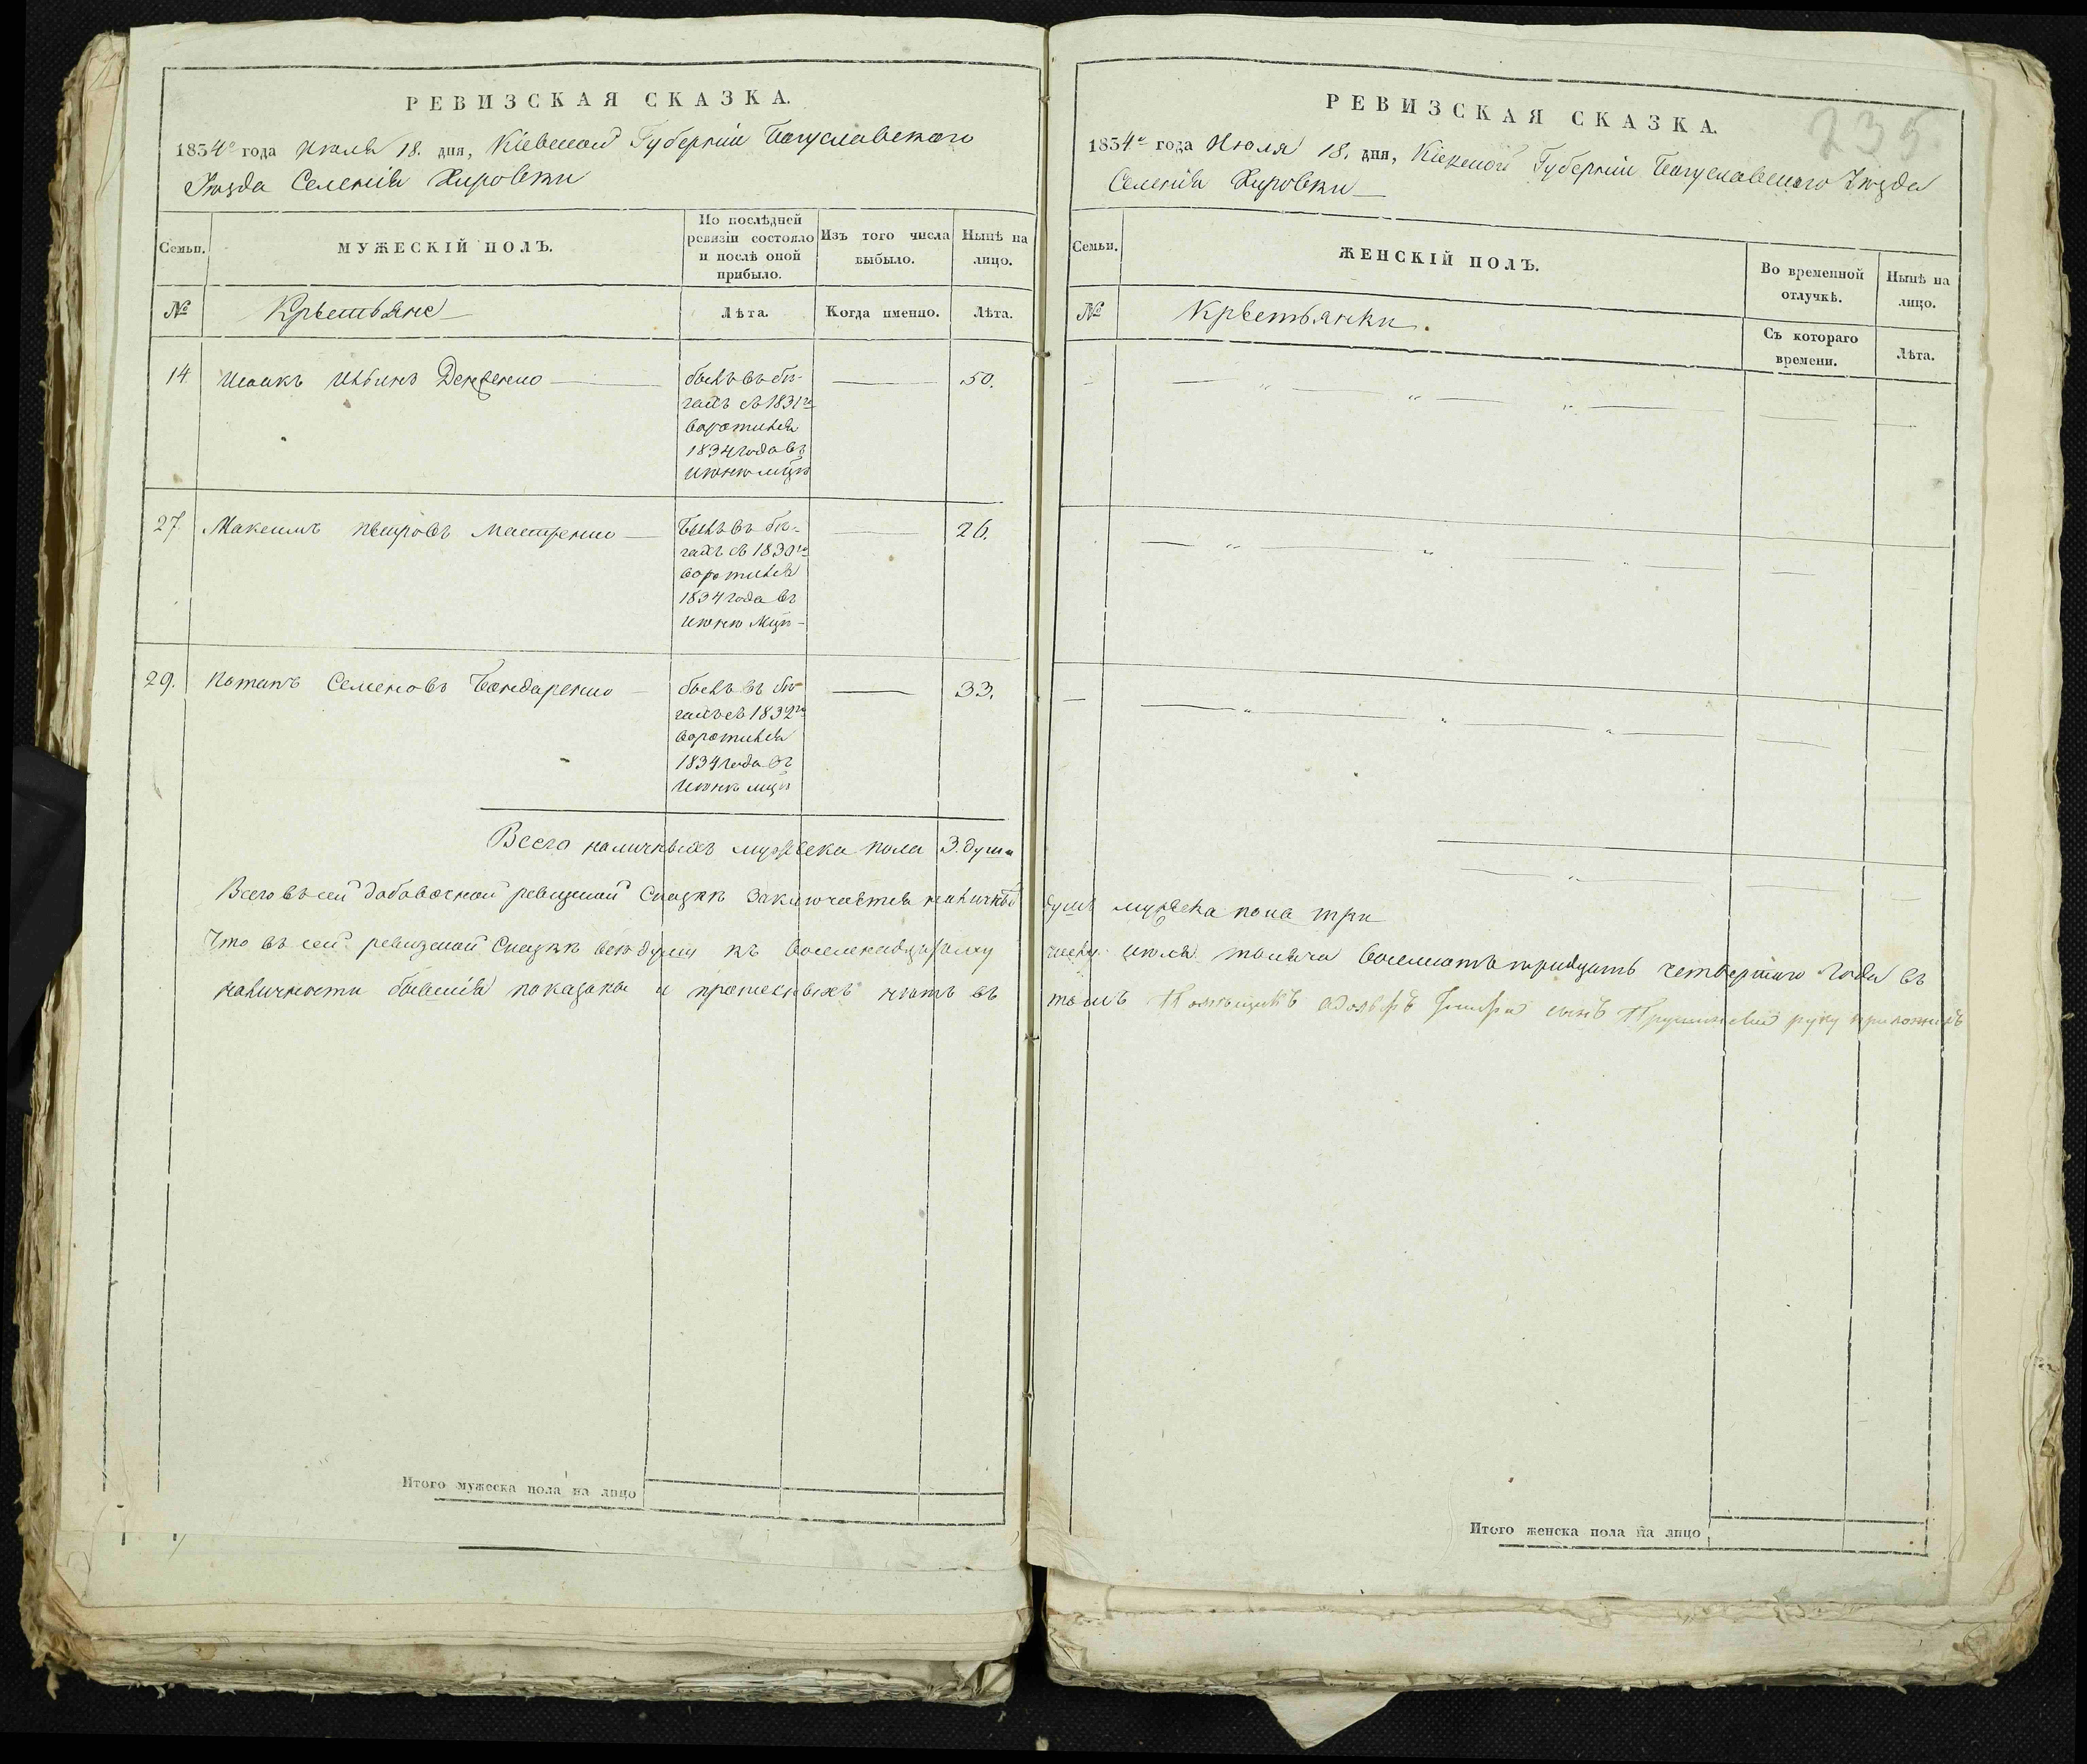 РЕВИЗСКАЯ СКАЗКА.
1834го года Июля 18. дня, Кіевской Губерніи Богуславскаго
Уѣзда Селенія Хировки
Семьи.
МУЖЕСКІЙ ПОЛЪ.
По послѣдней
ревизіи состояло
и послѣ оной
прибыло.
Изъ того числа
выбыло.
Нынѣ на
лицо.
№
Крѣстьяне
Лѣта.
Когда именно.
Лѣта.
14
Исакъ Ивбинъ
былъ въ бѣ-
гахъ съ 1831го
воротился
1834 года въ
Июнѣ мцѣ
50.
27.
Максимъ Пѣтровъ
Былъ въ бѣ-
гахъ съ 1830го
воротился
1834 года въ
Июнѣ Мцѣ
26.
29.
Потапъ Семеновъ Бондаренко
былъ въ бѣ
гахъ съ 1832го
воротился
1834 года въ
Июнѣ мцѣ
33.
Всего наличныхъ мужеска пола 3. души
Всего въ сей добавочной ревизской Сказкѣ заключается наличныхъ
Что въ сей ревизской Сказкѣ всѣ души къ восемнадцатому
наличности бывшія показаны и прописныхъ нѣтъ въ
Итого мужеска пола на лицо
235
РЕВИЗСКАЯ СКАЗКА.
1834го года Июля 18. дня, Кіевской Губерніи Богуславскаго Уѣзда
Селенія Хировки
Семьи.
ЖЕНСКІЙ ПОЛЪ.
Во временной
отлучкѣ.
Нынѣ на
лицо.
№
Крѣстьянки.
Съ котораго
времени.
Лѣта.
душъ мужека пола три
числу июля тысяча восемсотъ тридцать четвертаго года въ
томъ Помѣщикъ сынъ руку приложилъ
Итого женска пола на лицо